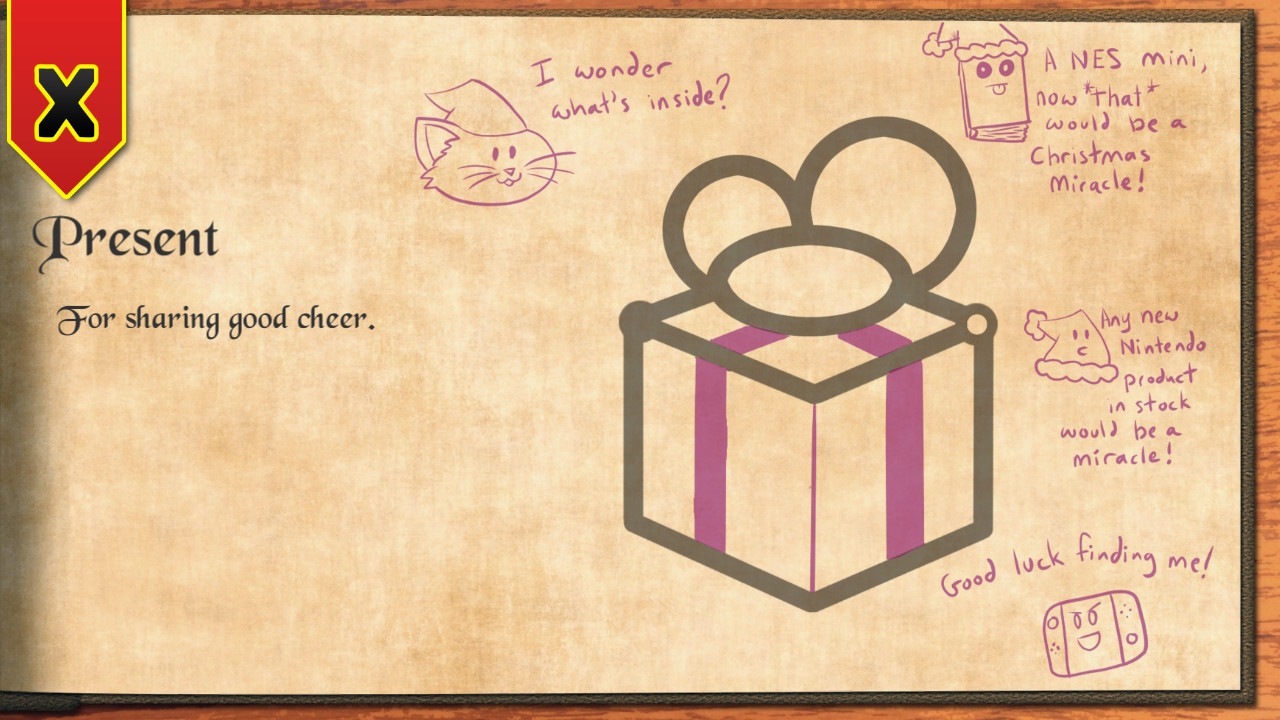 X
Present
For sharing good cheer.
I wonder
what's inside?
A NES mini,
now *that*
would be a
Christmas
miracle!
Any new
Nintendo
product
in stock
would be a
miracle!
Good luck finding me!